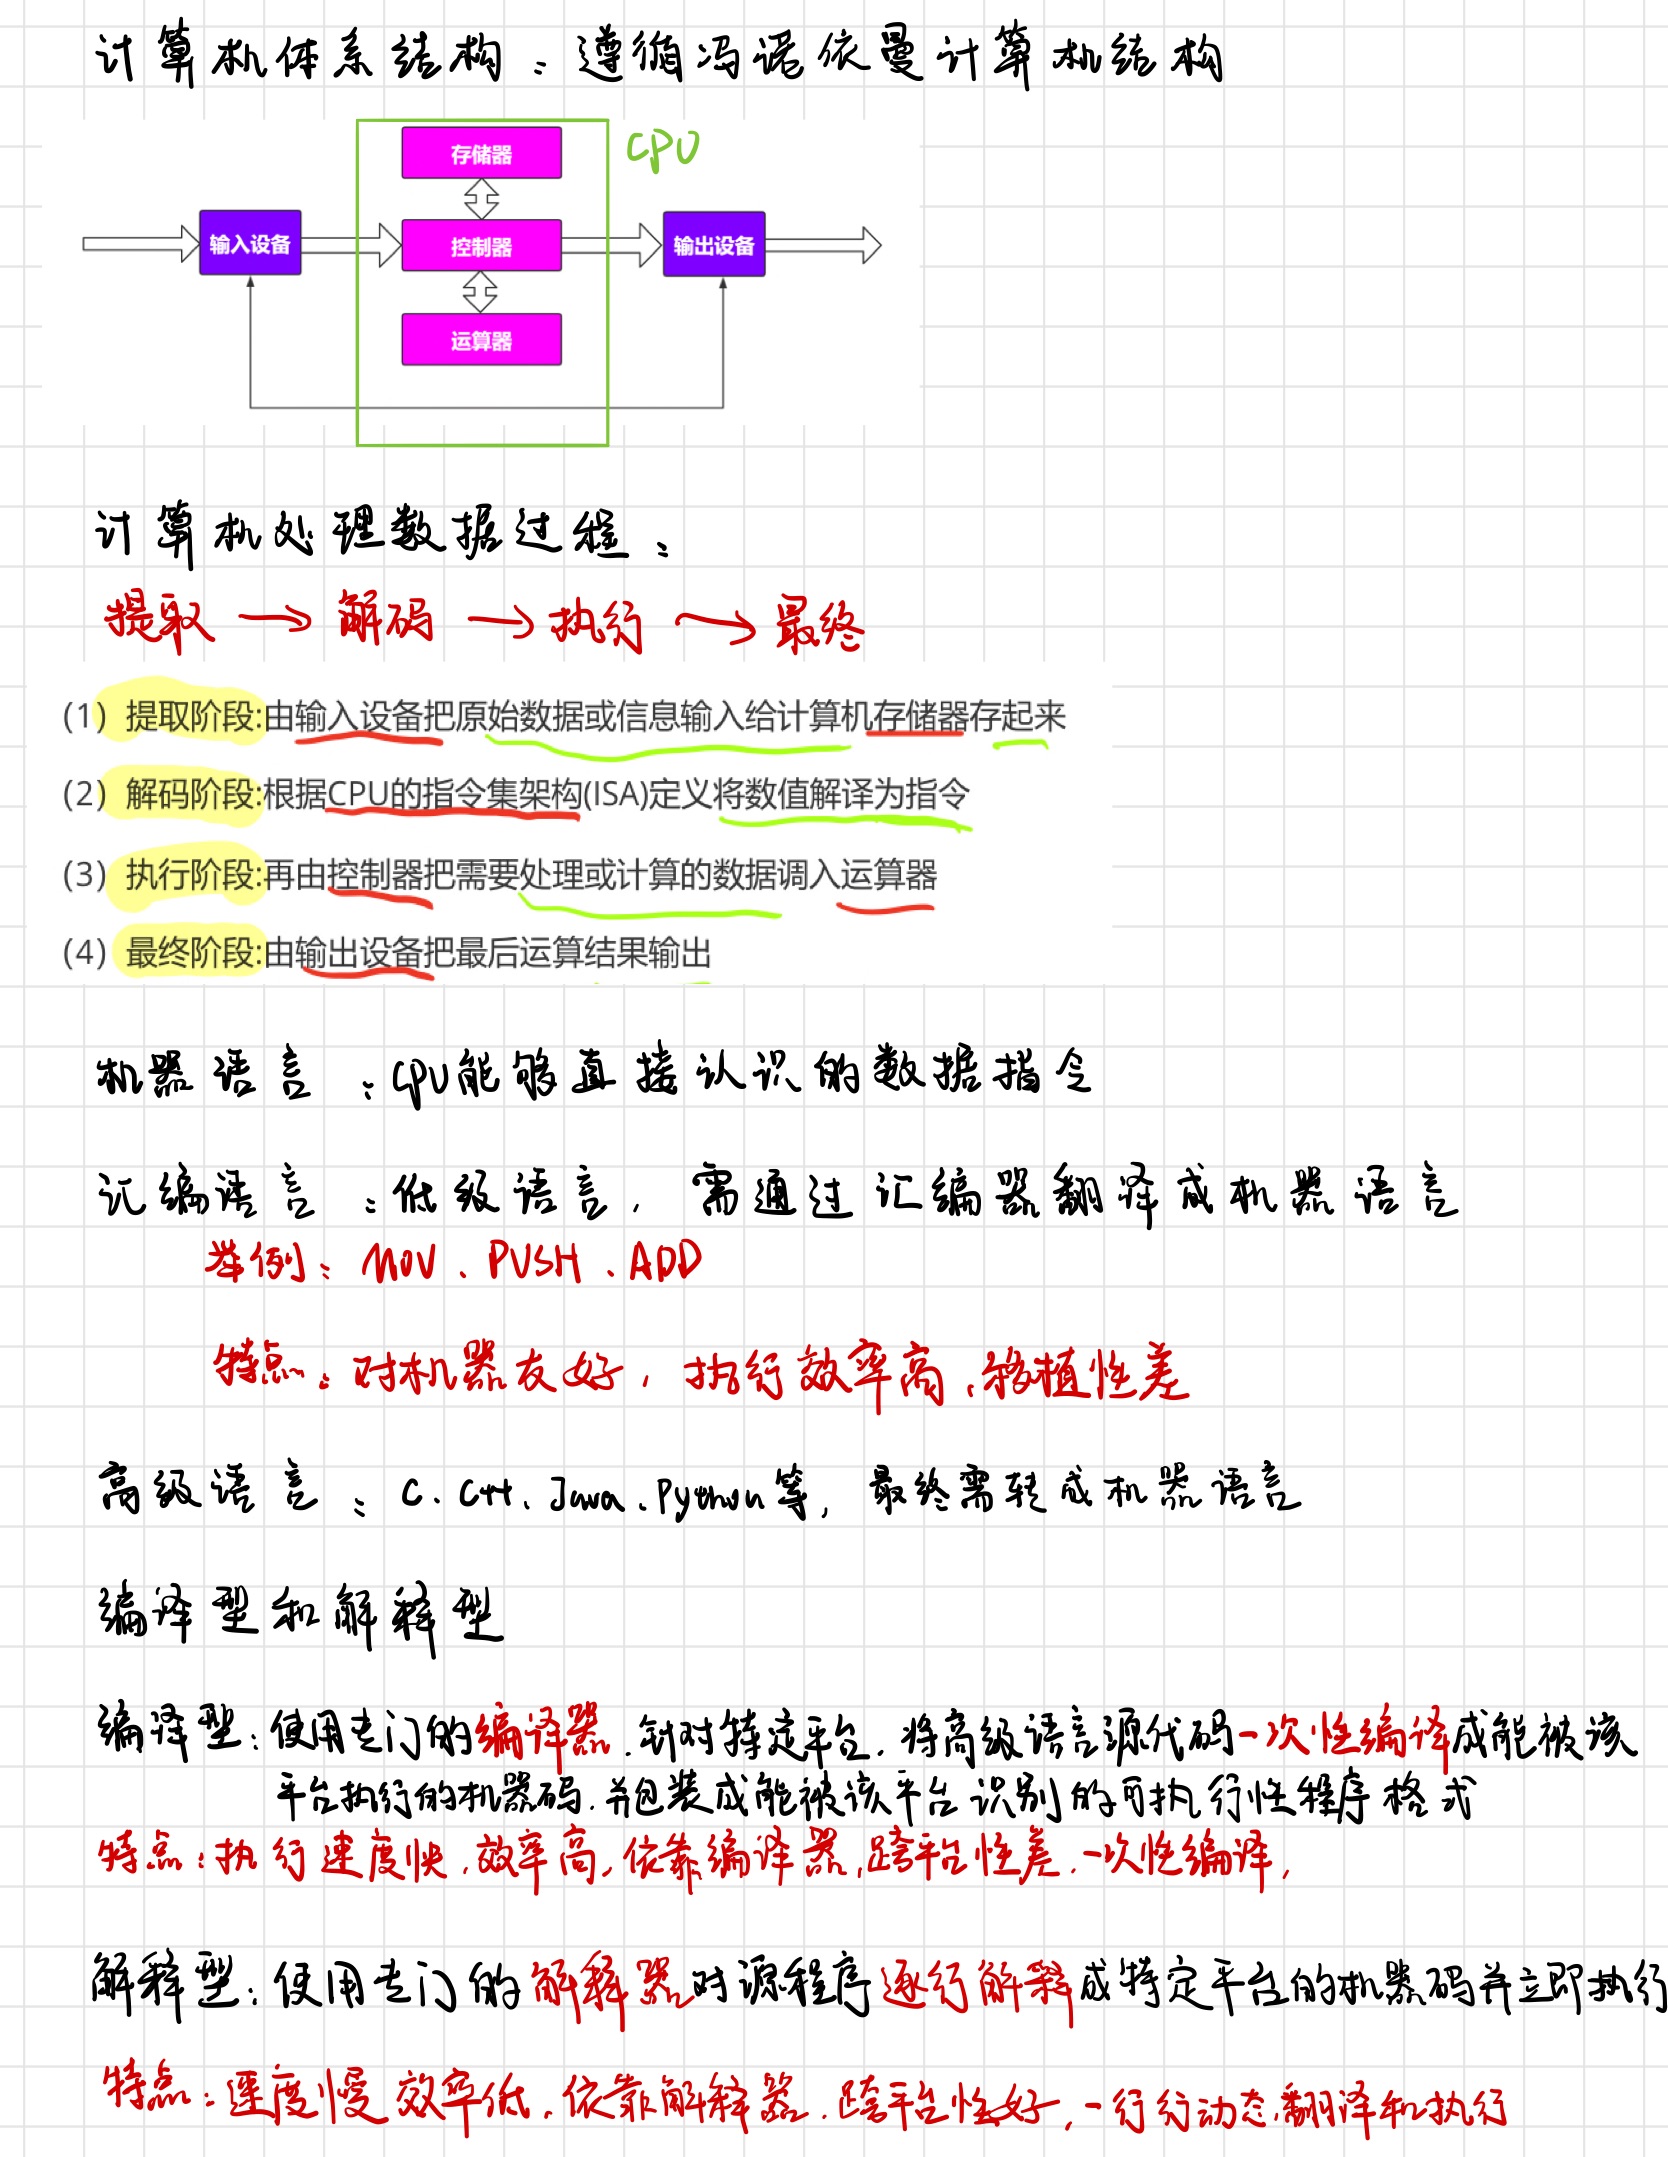 计算机体系结构：遵循冯诺依曼计算机结构
CPU
存储器
输入设备
控制器
输出设备
运算器
计算机处理数据过程：
提取 → 解码 → 执行 → 最终
(1) 提取阶段:由输入设备把原始数据或信息输入给计算机存储器存起来
(2) 解码阶段:根据CPU的指令集架构(ISA)定义将数值解译为指令
(3) 执行阶段:再由控制器把需要处理或计算的数据调入运算器
(4) 最终阶段:由输出设备把最后运算结果输出
机器语言：CPU能够直接认识的数据指令
汇编语言：低级语言，需通过汇编器翻译成机器语言
举例：MOV、PUSH、ADD
特点：对机器友好，执行效率高、移植性差
高级语言：C、C++、Java、Python等，最终需转成机器语言
编译型和解释型
编译型：使用专门的编译器、针对特定平台、将高级语言源代码一次性编译成能被该
平台执行的机器码、并包装成能被该平台识别的可执行性程序格式
特点：执行速度快、效率高，依靠编译器，跨平台性差、一次性编译，
解释型：使用专门的解释器对源程序逐行解释成特定平台的机器码并立即执行
特点：速度慢效率低、依靠解释器、跨平台性好，一行行动态翻译和执行